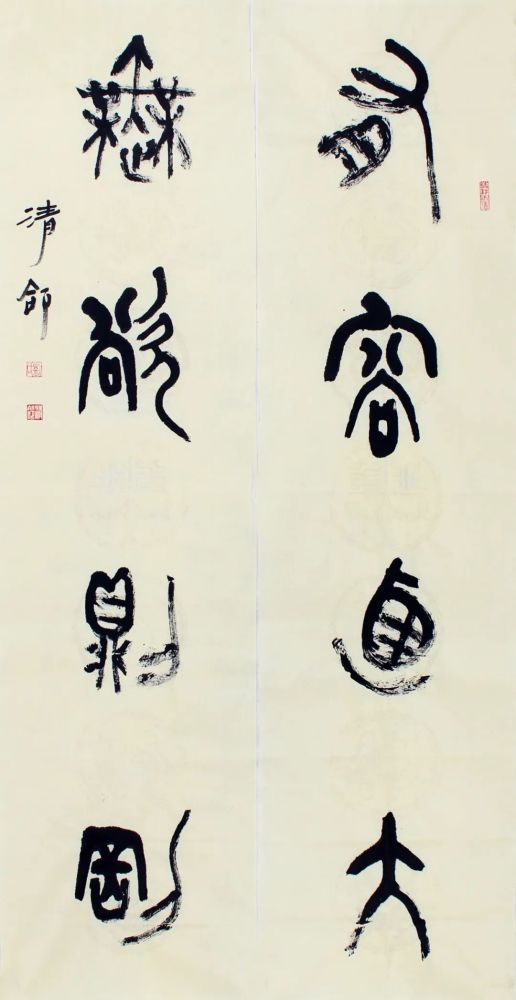 有容迺大
無欲則剛
清